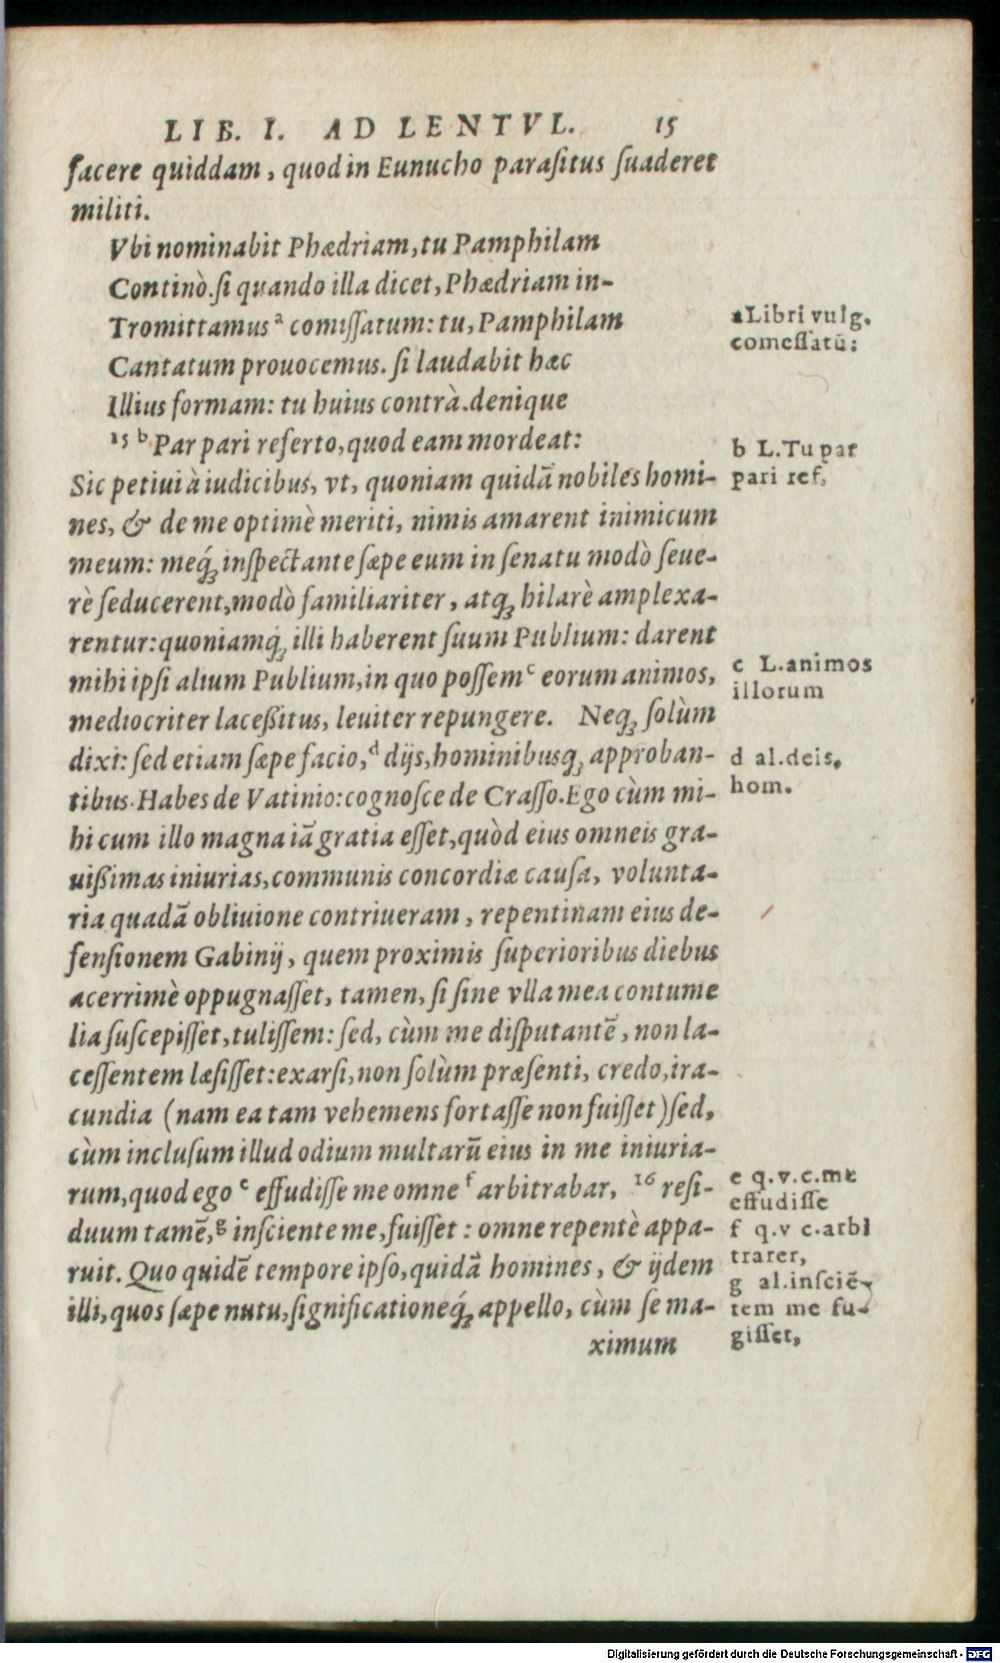 LIB. I. AD LENTVL. 15
facere quiddam, quod in Eunucho parasitus suaderet
militi.
Vbi nominabit Phædriam, tu Pamphilam
Continò. si quando illa dicet, Phædriam in-
Tromittamus ᵃ comissatum: tu, Pamphilam
Cantatum prouocemus. si laudabit hæc
Illius formam: tu huius contrà. denique
¹⁵ ᵇ Par pari referto, quod eam mordeat:
Sic petiui à iudicibus, vt, quoniam quidã nobiles homi-
nes, & de me optimè meriti, nimis amarent inimicum
meum: meq́ꝫ inspectante sæpe eum in senatu modò seue-
rè seducerent, modò familiariter, atqꝫ hilarè amplexa-
rentur: quoniamq́ꝫ illi haberent suum Publium: darent
mihi ipsi alium Publium, in quo possem ᶜ eorum animos,
mediocriter laceßitus, leuiter repungere. Neqꝫ solùm
dixi: sed etiam sæpe facio, ᵈ dijs, hominibusqꝫ approban-
tibus. Habes de Vatinio: cognosce de Crasso. Ego cùm mi-
hi cum illo magna iã gratia esset, quòd eius omneis gra-
uißimas iniurias, communis concordiæ causa, volunta-
ria quadã obliuione contriueram, repentinam eius de-
fensionem Gabinij, quem proximis superioribus diebus
acerrimè oppugnasset, tamen, si sine vlla mea contume
lia suscepisset, tulissem: sed, cùm me disputantẽ, non la-
cessentem læsisset: exarsi, non solùm præsenti, credo, ira-
cundia (nam ea tam vehemens fortasse non fuisset) sed,
cùm inclusum illud odium multarũ eius in me iniuria-
rum, quod ego ᵉ effudisse me omne ᶠ arbitrabar, ¹⁶ resi-
duum tamẽ, ᵍ insciente me, fuisset: omne repentè appa-
ruit. Quo quidẽ tempore ipso, quidã homines, & ijdem
illi, quos sæpe nutu, significationeq́ꝫ appello, cùm se ma-
ximum
a Libri vulg.
comessatũ:
b L. Tu par
pari ref.
c L. animos
illorum
d al. deis,
hom.
e q. v. c. me
effudisse
f q. v c. arbi
trarer,
g al. insciẽ-
tem me fu-
gisset,
Digitalisierung gefördert durch die Deutsche Forschungsgemeinschaft - DFG